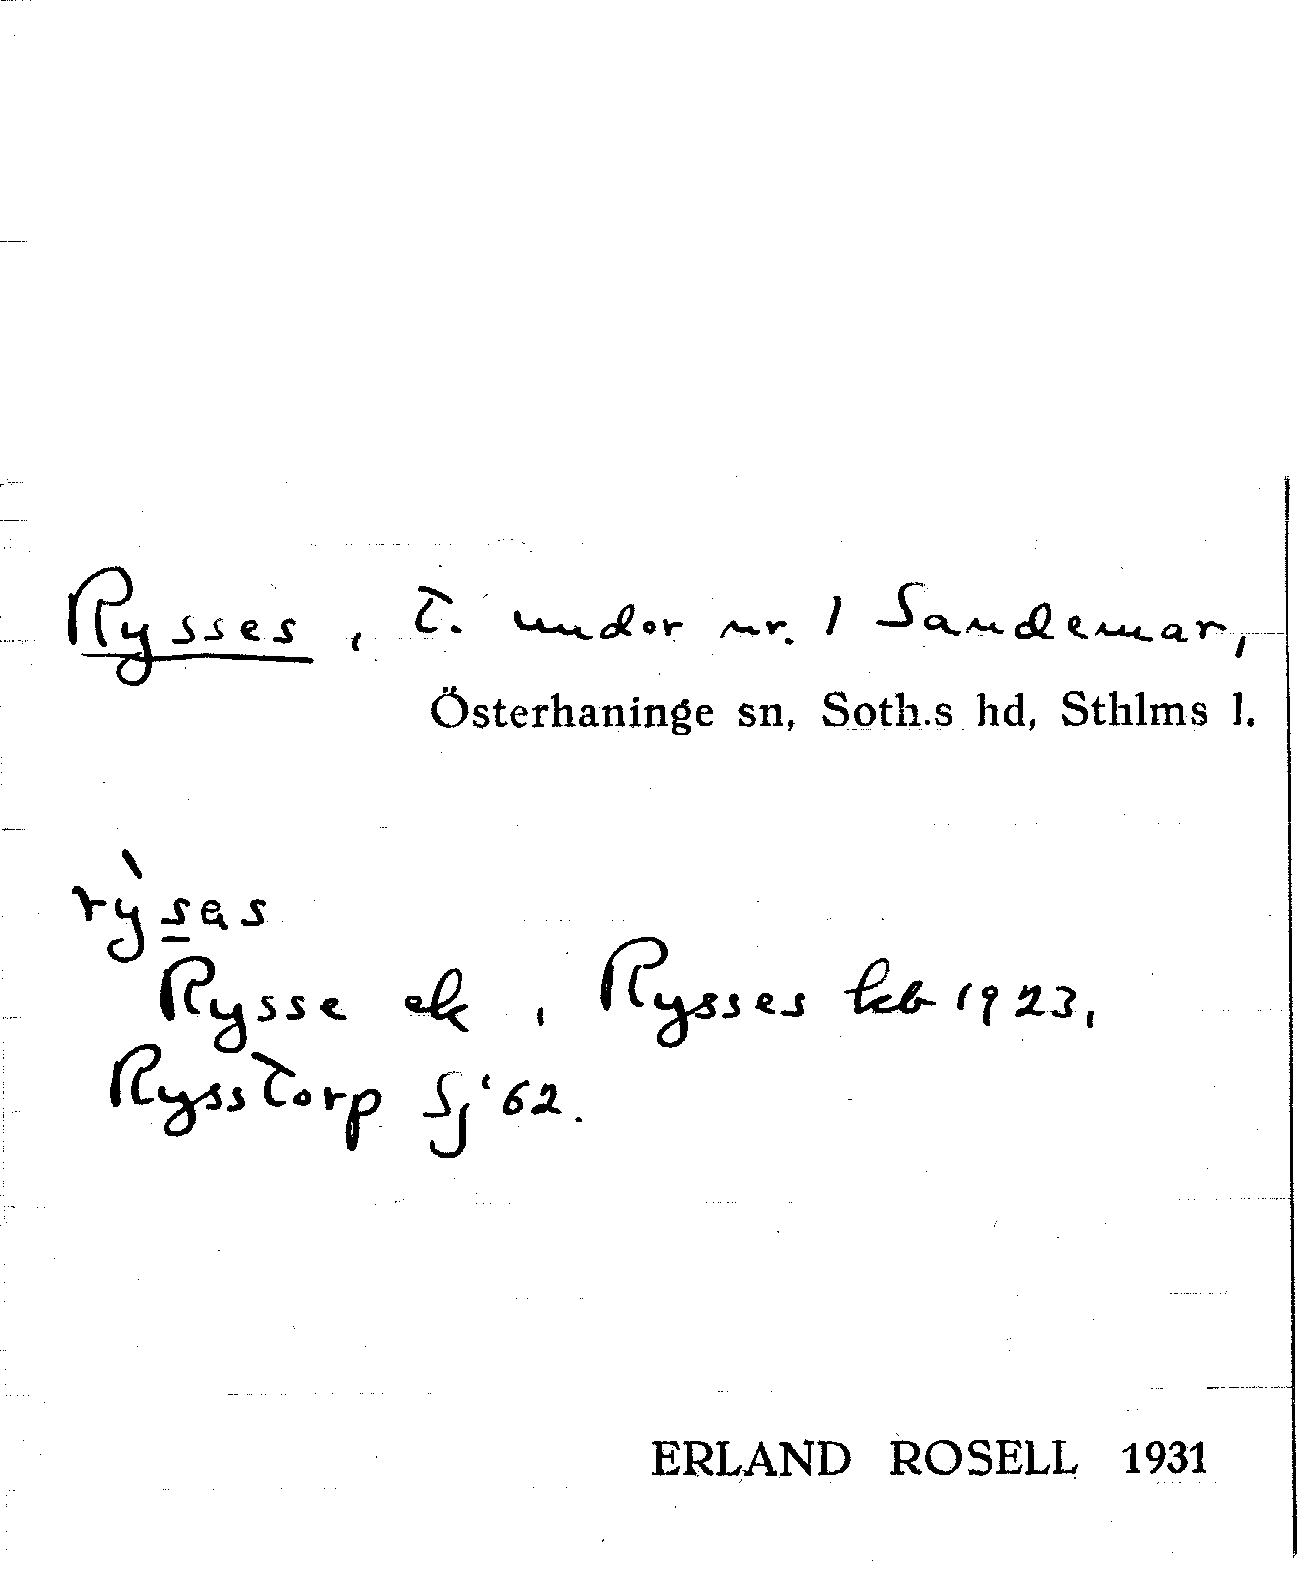 Rysses, t. under nr. 1 Sandemar,
Österhaninge sn, Soth.s hd, Sthlms l.
rỳsas
Rysse ek, Rysses kb 1923,
Rysstorp Sj '62.
ERLAND ROSELL 1931